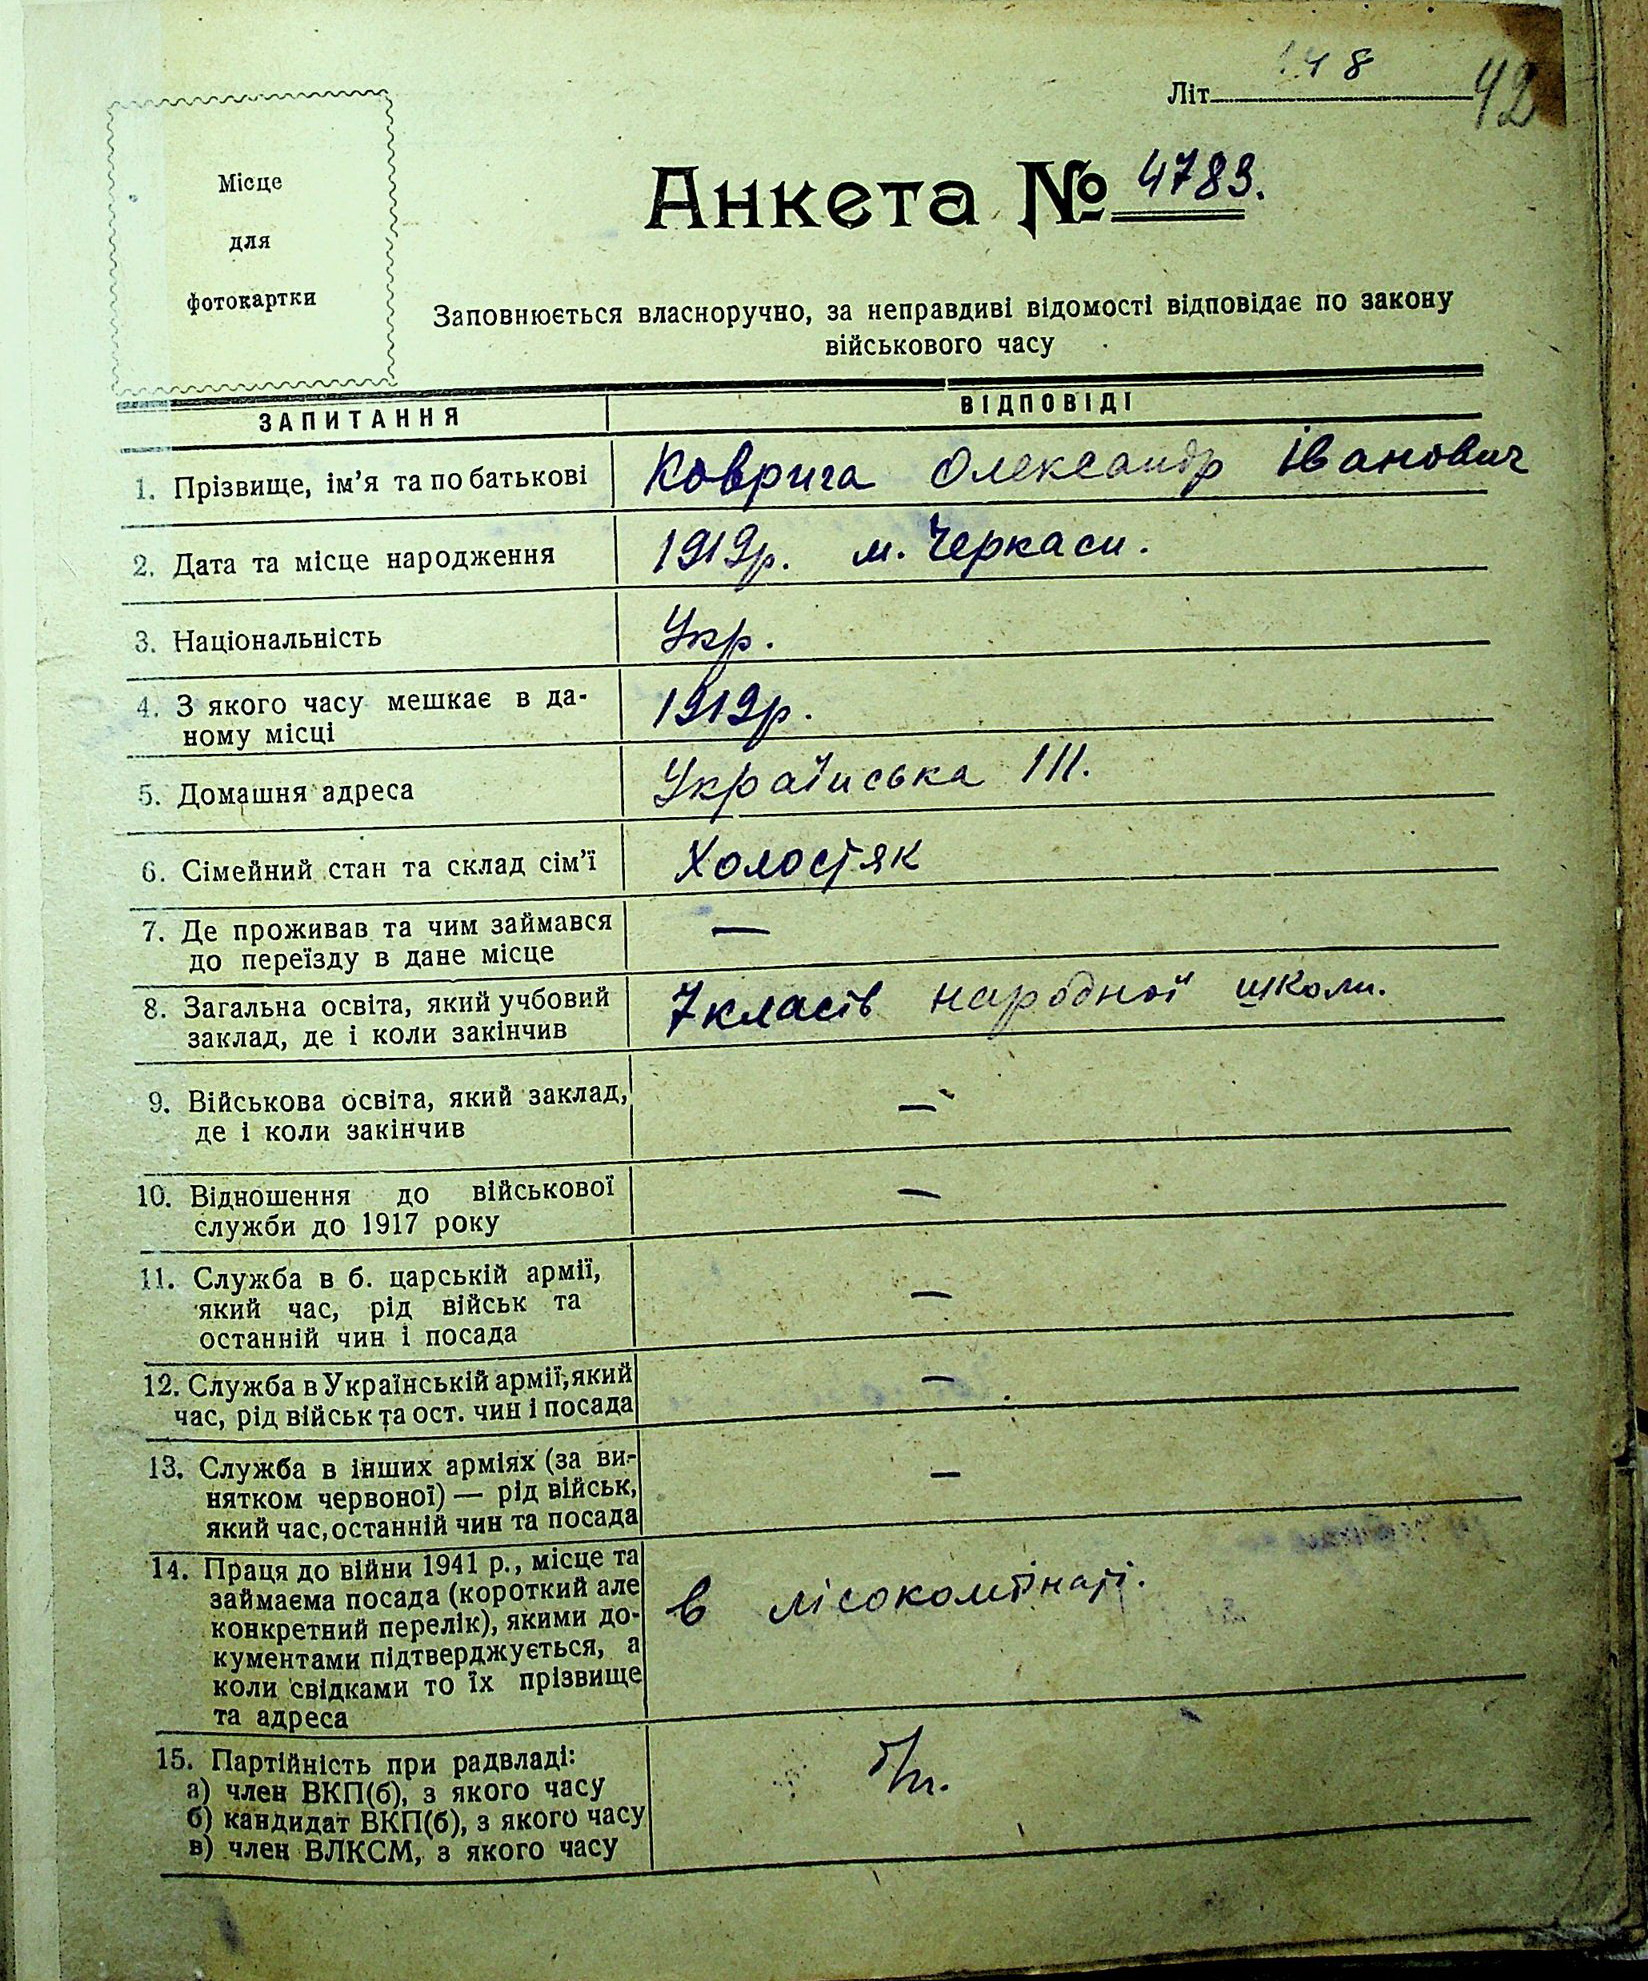 148
42
Літ
Місце
для
фотокартки
Анкета № 4783.
Заповнюється власноручно, за неправдиві відомості відповідає по закону
військового часу
ЗАПИТАННЯ ВІДПОВІДІ
1. Прізвище, ім'я та по батькові Коврига Олександр Іванович
2. Дата та місце народження 1919р. м. Черкаси.
3. Національність Укр.
4. З якого часу мешкає в да-
ному місці 1919р.
5. Домашня адреса Українська 111.
6. Сімейний стан та склад сім'ї Холостяк
7. Де проживав та чим займався —
до переїзду в дане місце
8. Загальна освіта, який учбовий 7 класів народної школи.
заклад, де і коли закінчив
9. Військова освіта, який заклад, —
де і коли закінчив
10. Відношення до військової —
служби до 1917 року
11. Служба в б. царській армії,
який час, рід військ та —
останній чин і посада
12. Служба в Українській армії, який —
час, рід військ та ост. чин і посада
13. Служба в інших арміях (за ви- —
нятком червоної) — рід військ,
який час, останній чин та посада
14. Праця до війни 1941 р., місце та
займаєма посада (короткий але в лісокомбінаті.
конкретний перелік), якими до-
кументами підтверджується, а
коли свідками то їх прізвище
та адреса
15. Партійність при радвладі: б/п.
а) член ВКП(б), з якого часу
б) кандидат ВКП(б), з якого часу
в) член ВЛКСМ, з якого часу